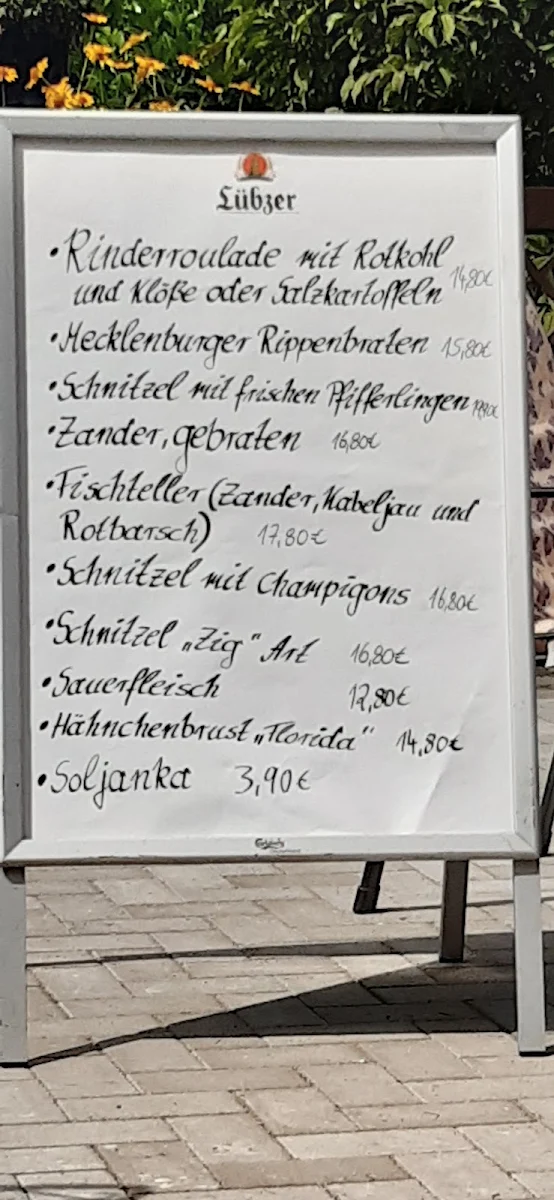 Lübzer
• Rinderroulade mit Rotkohl
und Klöße oder Salzkartoffeln 14,80€
• Mecklenburger Rippenbraten 15,80€
• Schnitzel mit frischen Pfifferlingen
• Zander, gebraten 16,80€
• Fischteller (Zander, Kabeljau und
Rotbarsch) 17,80€
• Schnitzel mit Champigons 16,80€
• Schnitzel „Zig“ Art 16,80€
• Sauerfleisch 12,80€
• Hähnchenbrust „Florida“ 14,80€
• Soljanka 3,90€
Carlsberg